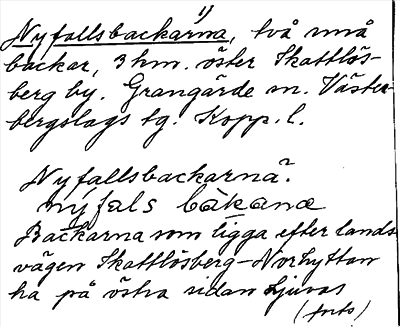 Nyfallsbackarna, två små
backar, 3 km. öster Skattlös-
berg by. Grangärde sn. Väster-
bergslags tg. Kopp. l.
Nyfallsbackarna?
nýfals bàkana
Backarna som ligga efter lands
vägen Skattlösberg-Norhyttan
ha på östra sidan Ljuvas
(forts)